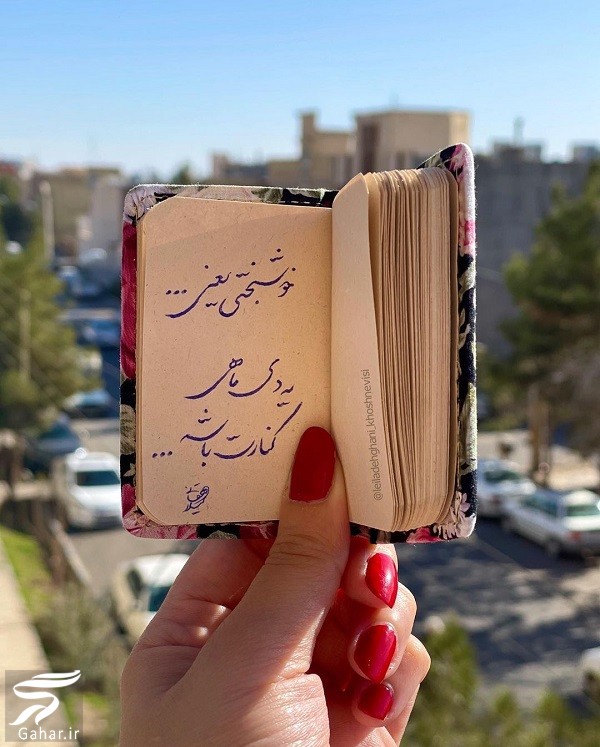 خوشبختی یعنی ...
یه دی ماهی
کنارت باشه ...
@leiladehghani_khoshnevisi
Gahar.ir